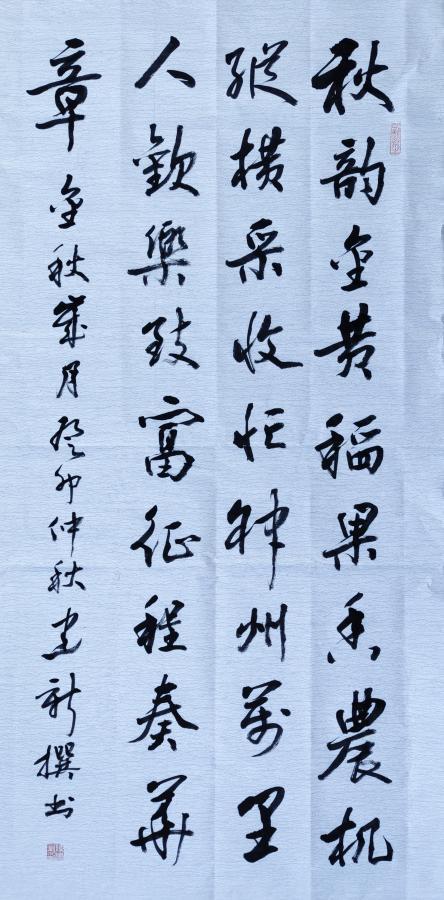 秋韵金黄稻果香農机
縱橫采收忙神州萬里
人歡樂致富征程奏華
章 金秋歲月癸卯仲秋建新撰书